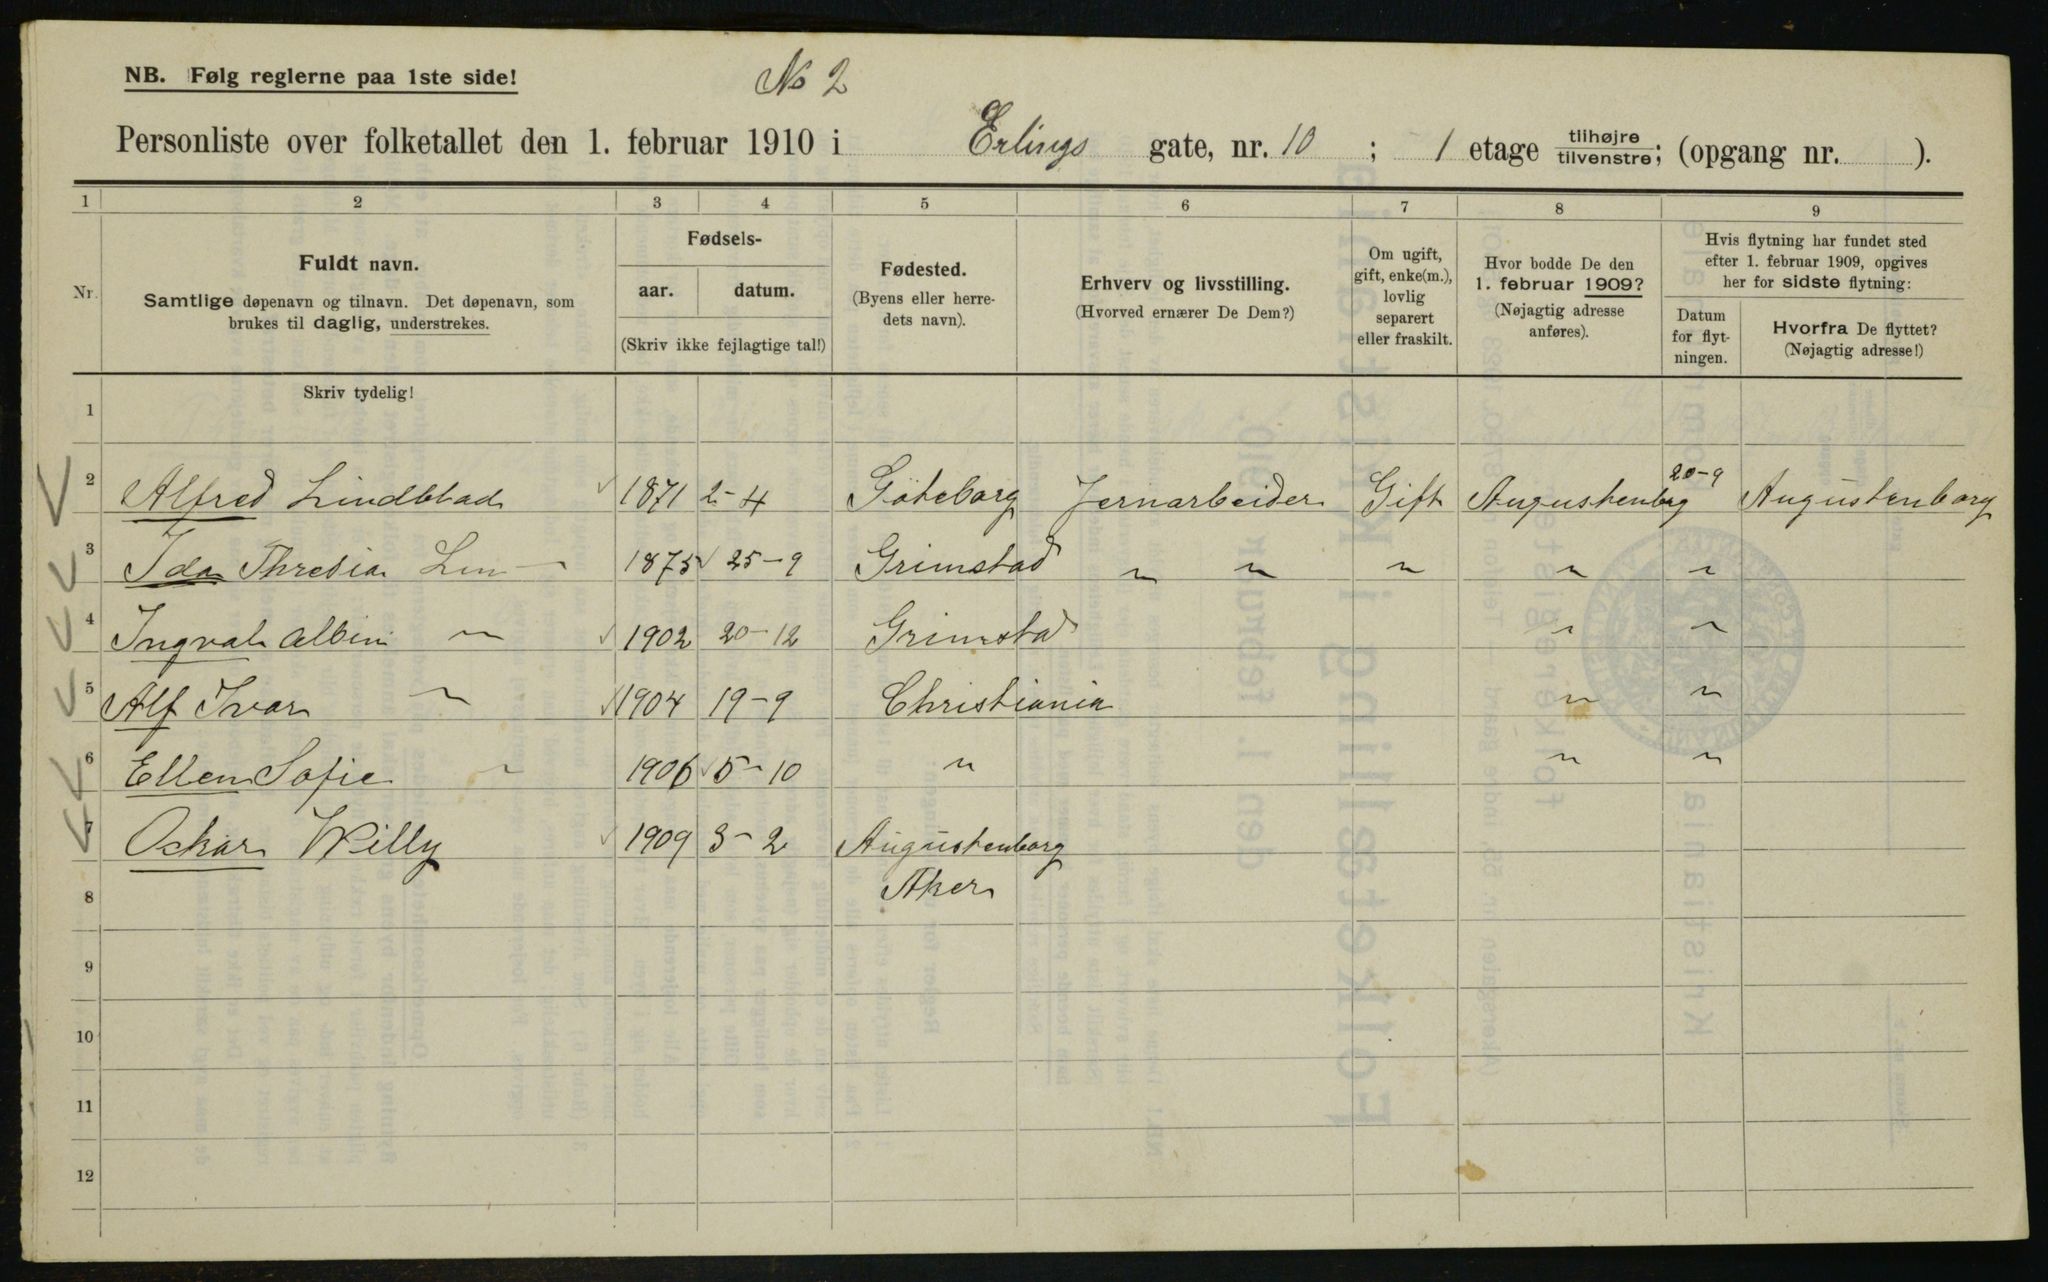 No 2
NB. Følg reglerne paa 1ste side!
Personliste over folketallet den 1. februar 1910 i Erlings gate, nr. 10 ; 1 etage tilhøjre/tilvenstre; (opgang nr. ).
1 2 3 4 5 6 7 8 9
Nr.
Fuldt navn.
Samtlige døpenavn og tilnavn. Det døpenavn, som
brukes til daglig, understrekes.
Fødsels-
aar. datum.
(Skriv ikke fejlagtige tal!)
Fødested.
(Byens eller herre-
dets navn).
Erhverv og livsstilling.
(Hvorved ernærer De Dem?)
Om ugift,
gift, enke(m.),
lovlig
separert
eller fraskilt.
Hvor bodde De den
1. februar 1909?
(Nøjagtig adresse
anføres).
Hvis flytning har fundet sted
efter 1. februar 1909, opgives
her for sidste flytning:
Datum
for flyt-
ningen.
Hvorfra De flyttet?
(Nøjagtig adresse!)
Skriv tydelig!
1
2 Alfred Lindblad 1871 2-4 Göteborg Jernarbeider Gift Augustenborg 20-9 Augustenborg
3 Ida Thresia Lin — 1875 25-9 Grimstad " " " " "
4 Ingval Albin " 1902 20-12 Grimstad " "
5 Alf Ivar " 1904 19-9 Christiania " "
6 Ellen Sofie " 1906 5-10 " " "
7 Oskar Willy 1909 3-2 Augustenborg
8 Aker
9
10
11
12